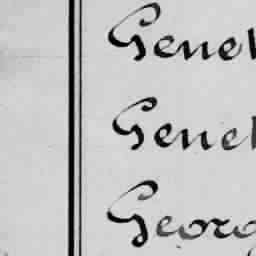 Genev
Genev
Georg